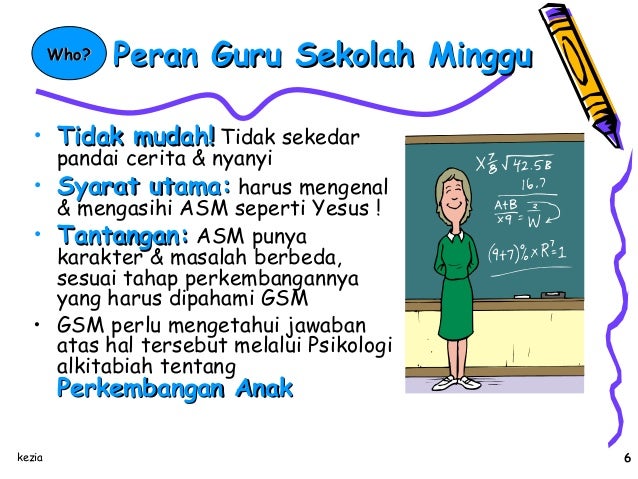 Who?
Peran Guru Sekolah Minggu
• Tidak mudah! Tidak sekedar
pandai cerita & nyanyi
• Syarat utama: harus mengenal
& mengasihi ASM seperti Yesus !
• Tantangan: ASM punya
karakter & masalah berbeda,
sesuai tahap perkembangannya
yang harus dipahami GSM
• GSM perlu mengetahui jawaban
atas hal tersebut melalui Psikologi
alkitabiah tentang
Perkembangan Anak
X 7/8 √42.58
16.7
A+B
x9 = 2/W
(9+7)% x R⁷=1
kezia
6